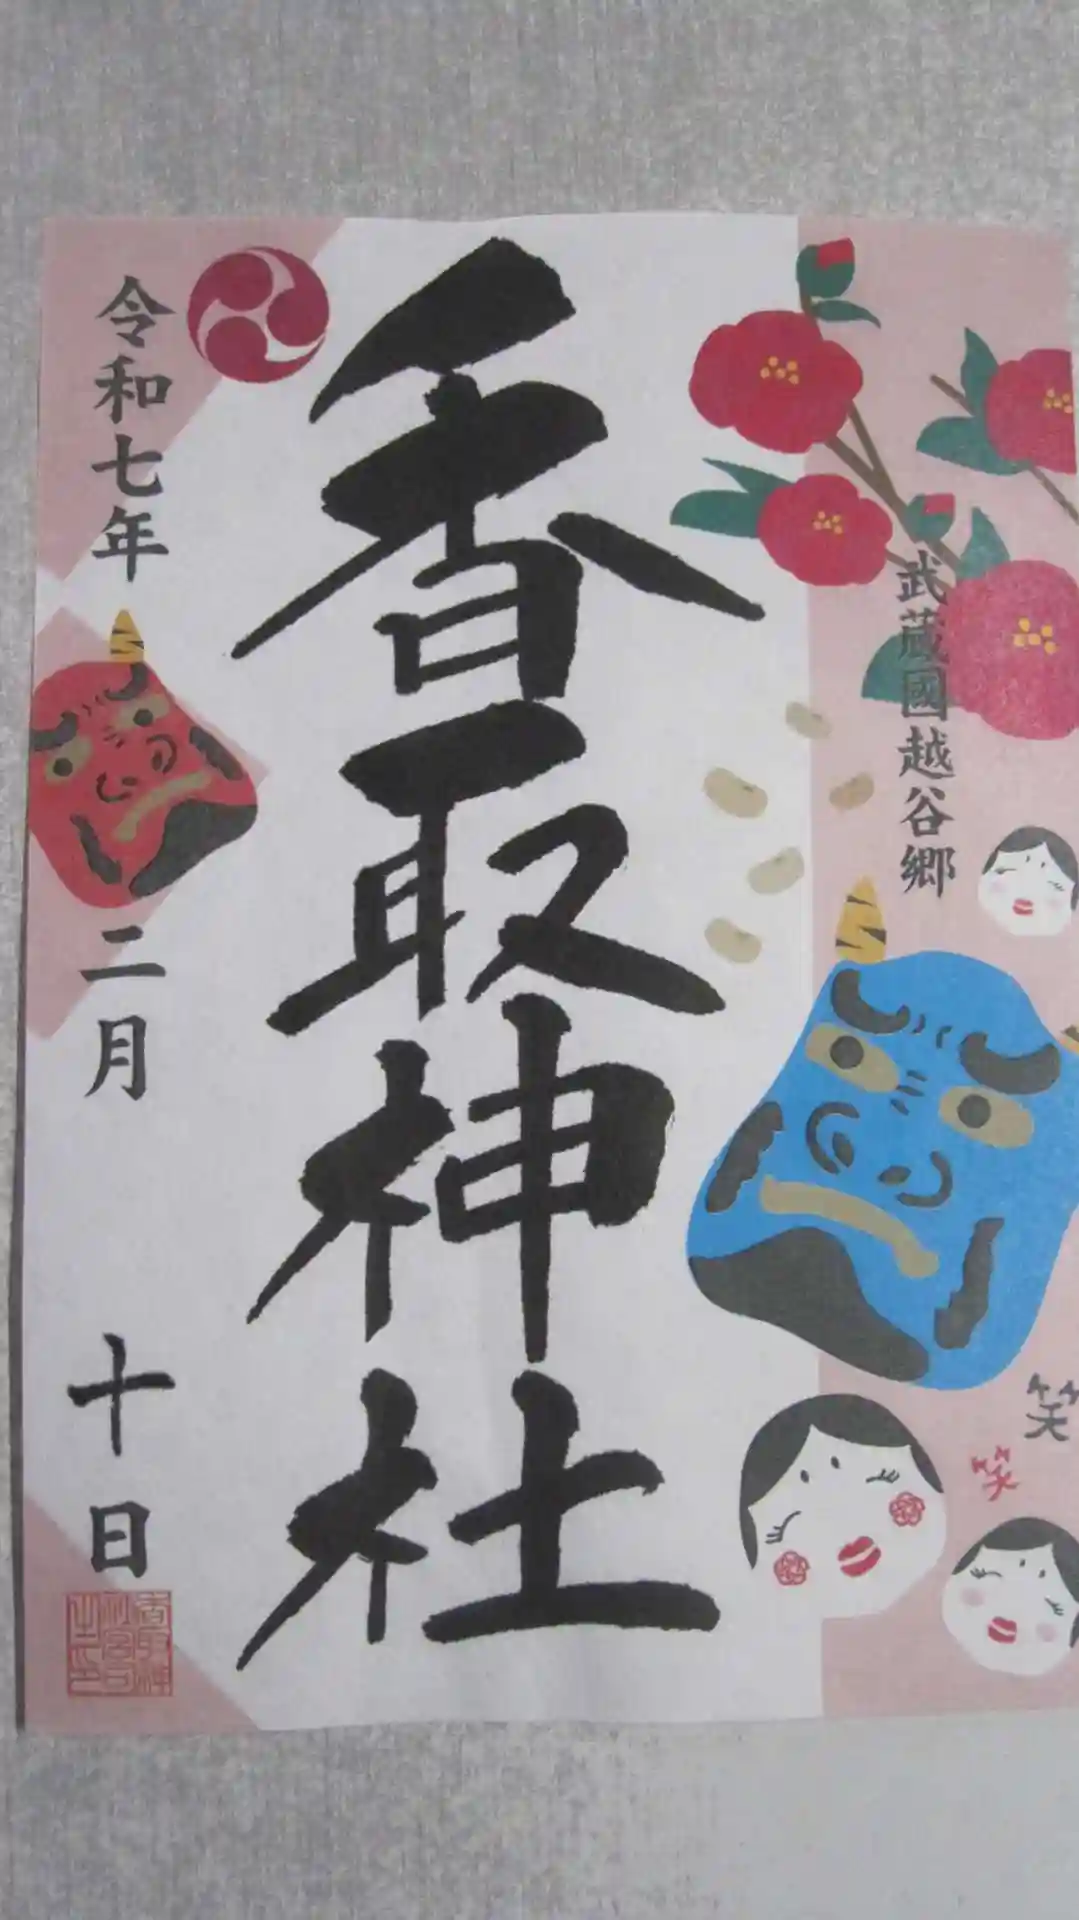 武蔵國越谷郷
香取神社
令和七年
二月
十日
笑
笑